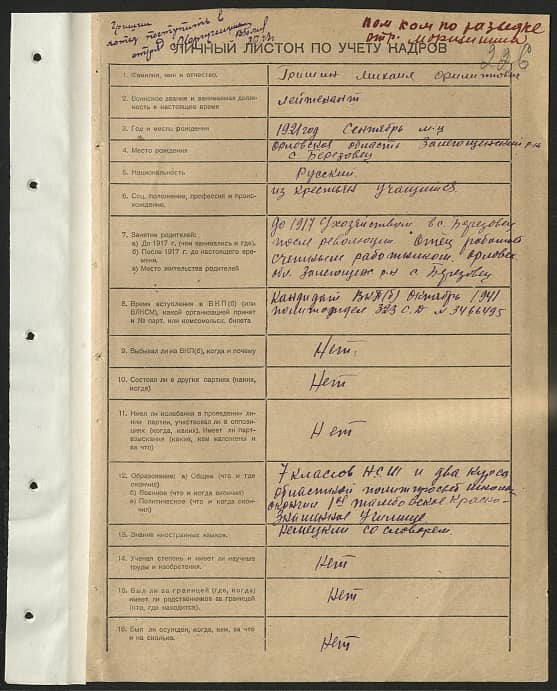 Гришин
хочет поступить в
отряд
пом ком по разведке
отр.
226
ЛИЧНЫЙ ЛИСТОК ПО УЧЕТУ КАДРОВ
1. Фамилия, имя и отчество.
Гришин Михаил
2. Воинское звание и занимаемая долж-
ность в настоящее время
лейтенант
3. Год и месяц рождения
1921 год Сентябрь м-ц
4. Место рождения
Орловская область Залегощенский р-н
с Березовец
5. Национальность
Русский
6. Соц. положение, профессия и проис-
хождение.
из крестьян учащийся
7. Занятие родителей:
а) До 1917 г. (чем занимались и где).
б) После 1917 г. до настоящего вре-
мени,
в) Место жительства родителей
До 1917 с/хозяйством в с. Березовец
после революции Отец работает
счетным работником. Орловск
обл. Залегощен р-н с Березовец
8. Время вступления в ВКП(б) (или
ВЛКСМ), какой организацией принят
и № парт. или комсомольск. билета
Кандидат ВКП(б) Октябрь 1941
политотдел 323 С.Д № 3466495
9. Выбывал ли из ВКП(б), когда и почему
Нет.
10. Состоял ли в других партиях (каких,
когда)
Нет
11. Имел ли колебания в проведении ли-
нии партии, участвовал ли в оппози-
циях (когда, каких). Имеет ли парт-
взыскания (какие, кем наложены и
за что)
Нет
12. Образование: а) Общее (что и где
окончил)
б) Военное (что и когда окончил)
в) Политическое (что и когда окон-
чил)
7 классов НСШ и два курса
областной политпросвет школы
окончил 1ое Тамбовское Красно-
Знаменное Училище
13. Знание иностранных языков.
Немецкий со словарем.
14. Ученая степень и имеет ли научные
труды и изобретения.
Нет
15. Был ли за границей (где, когда)
имеет ли родственников за границей
(кто, где находится).
Нет
16. Был ли осужден, когда, кем, за что
и на сколько.
Нет